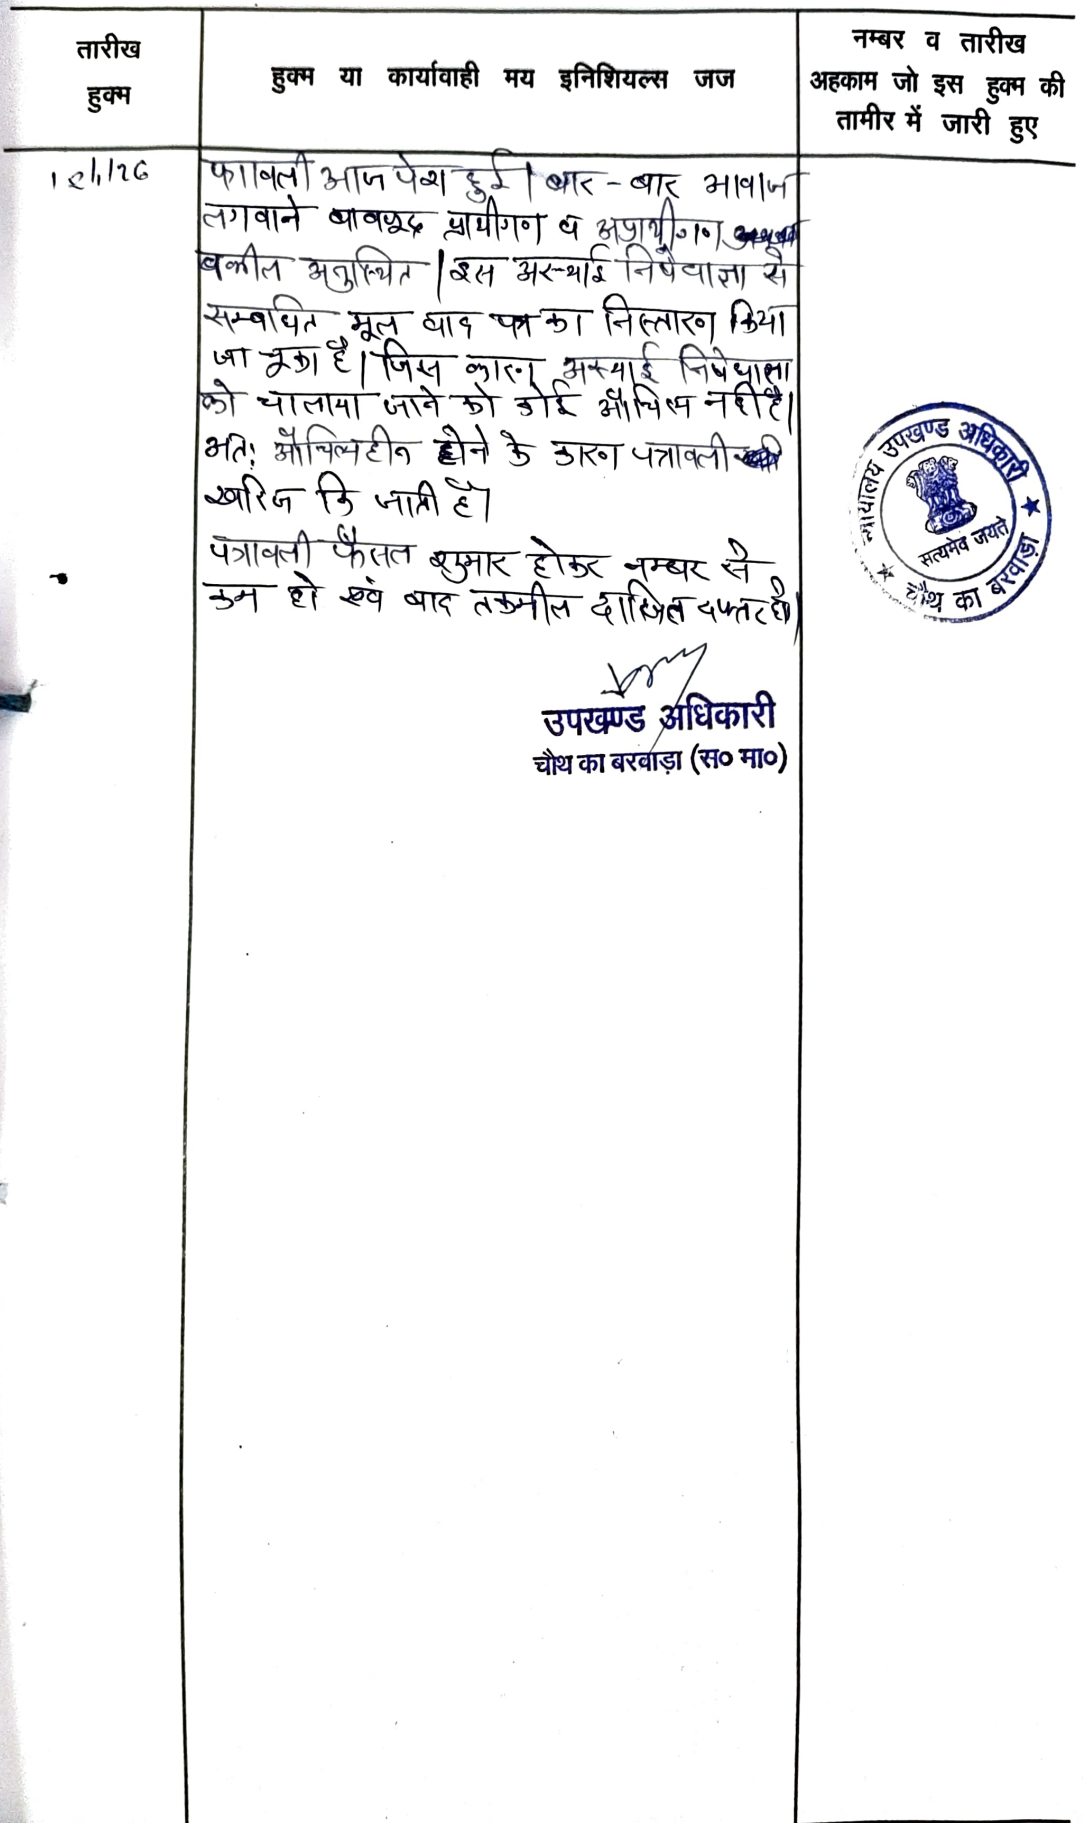 तारीख
हुक्म
हुक्म या कार्यावाही मय इनिशियल्स जज
नम्बर व तारीख
अहकाम जो इस हुक्म की
तामीर में जारी हुए
आज पेश हुई। बार-बार आवाज
लगवाने बावजूद प्रार्थीगण व अप्रार्थीगण
वकील अनुस्थित। इस अस्थाई निषेधाज्ञा से
सम्बंधित मूल वाद पत्र का निस्तारण किया
जा चूका है। जिस कारण अस्थाई निषेधाज्ञा
को चालाया जाने को कोई औचित्य नहीं है।
अतः औचित्यहीन होने के कारण पत्रावली
खारिज कि जाती है।
पत्रावली फैसल शुमार होकर नम्बर से
कम हो एवं बाद तकमील दाखिल दफ्तर हो।
उपखण्ड अधिकारी
चौथ का बरवाड़ा (स० मा०)
न्यायालय उपखण्ड अधिकारी
सत्यमेव जयते
चौथ का बरवाड़ा